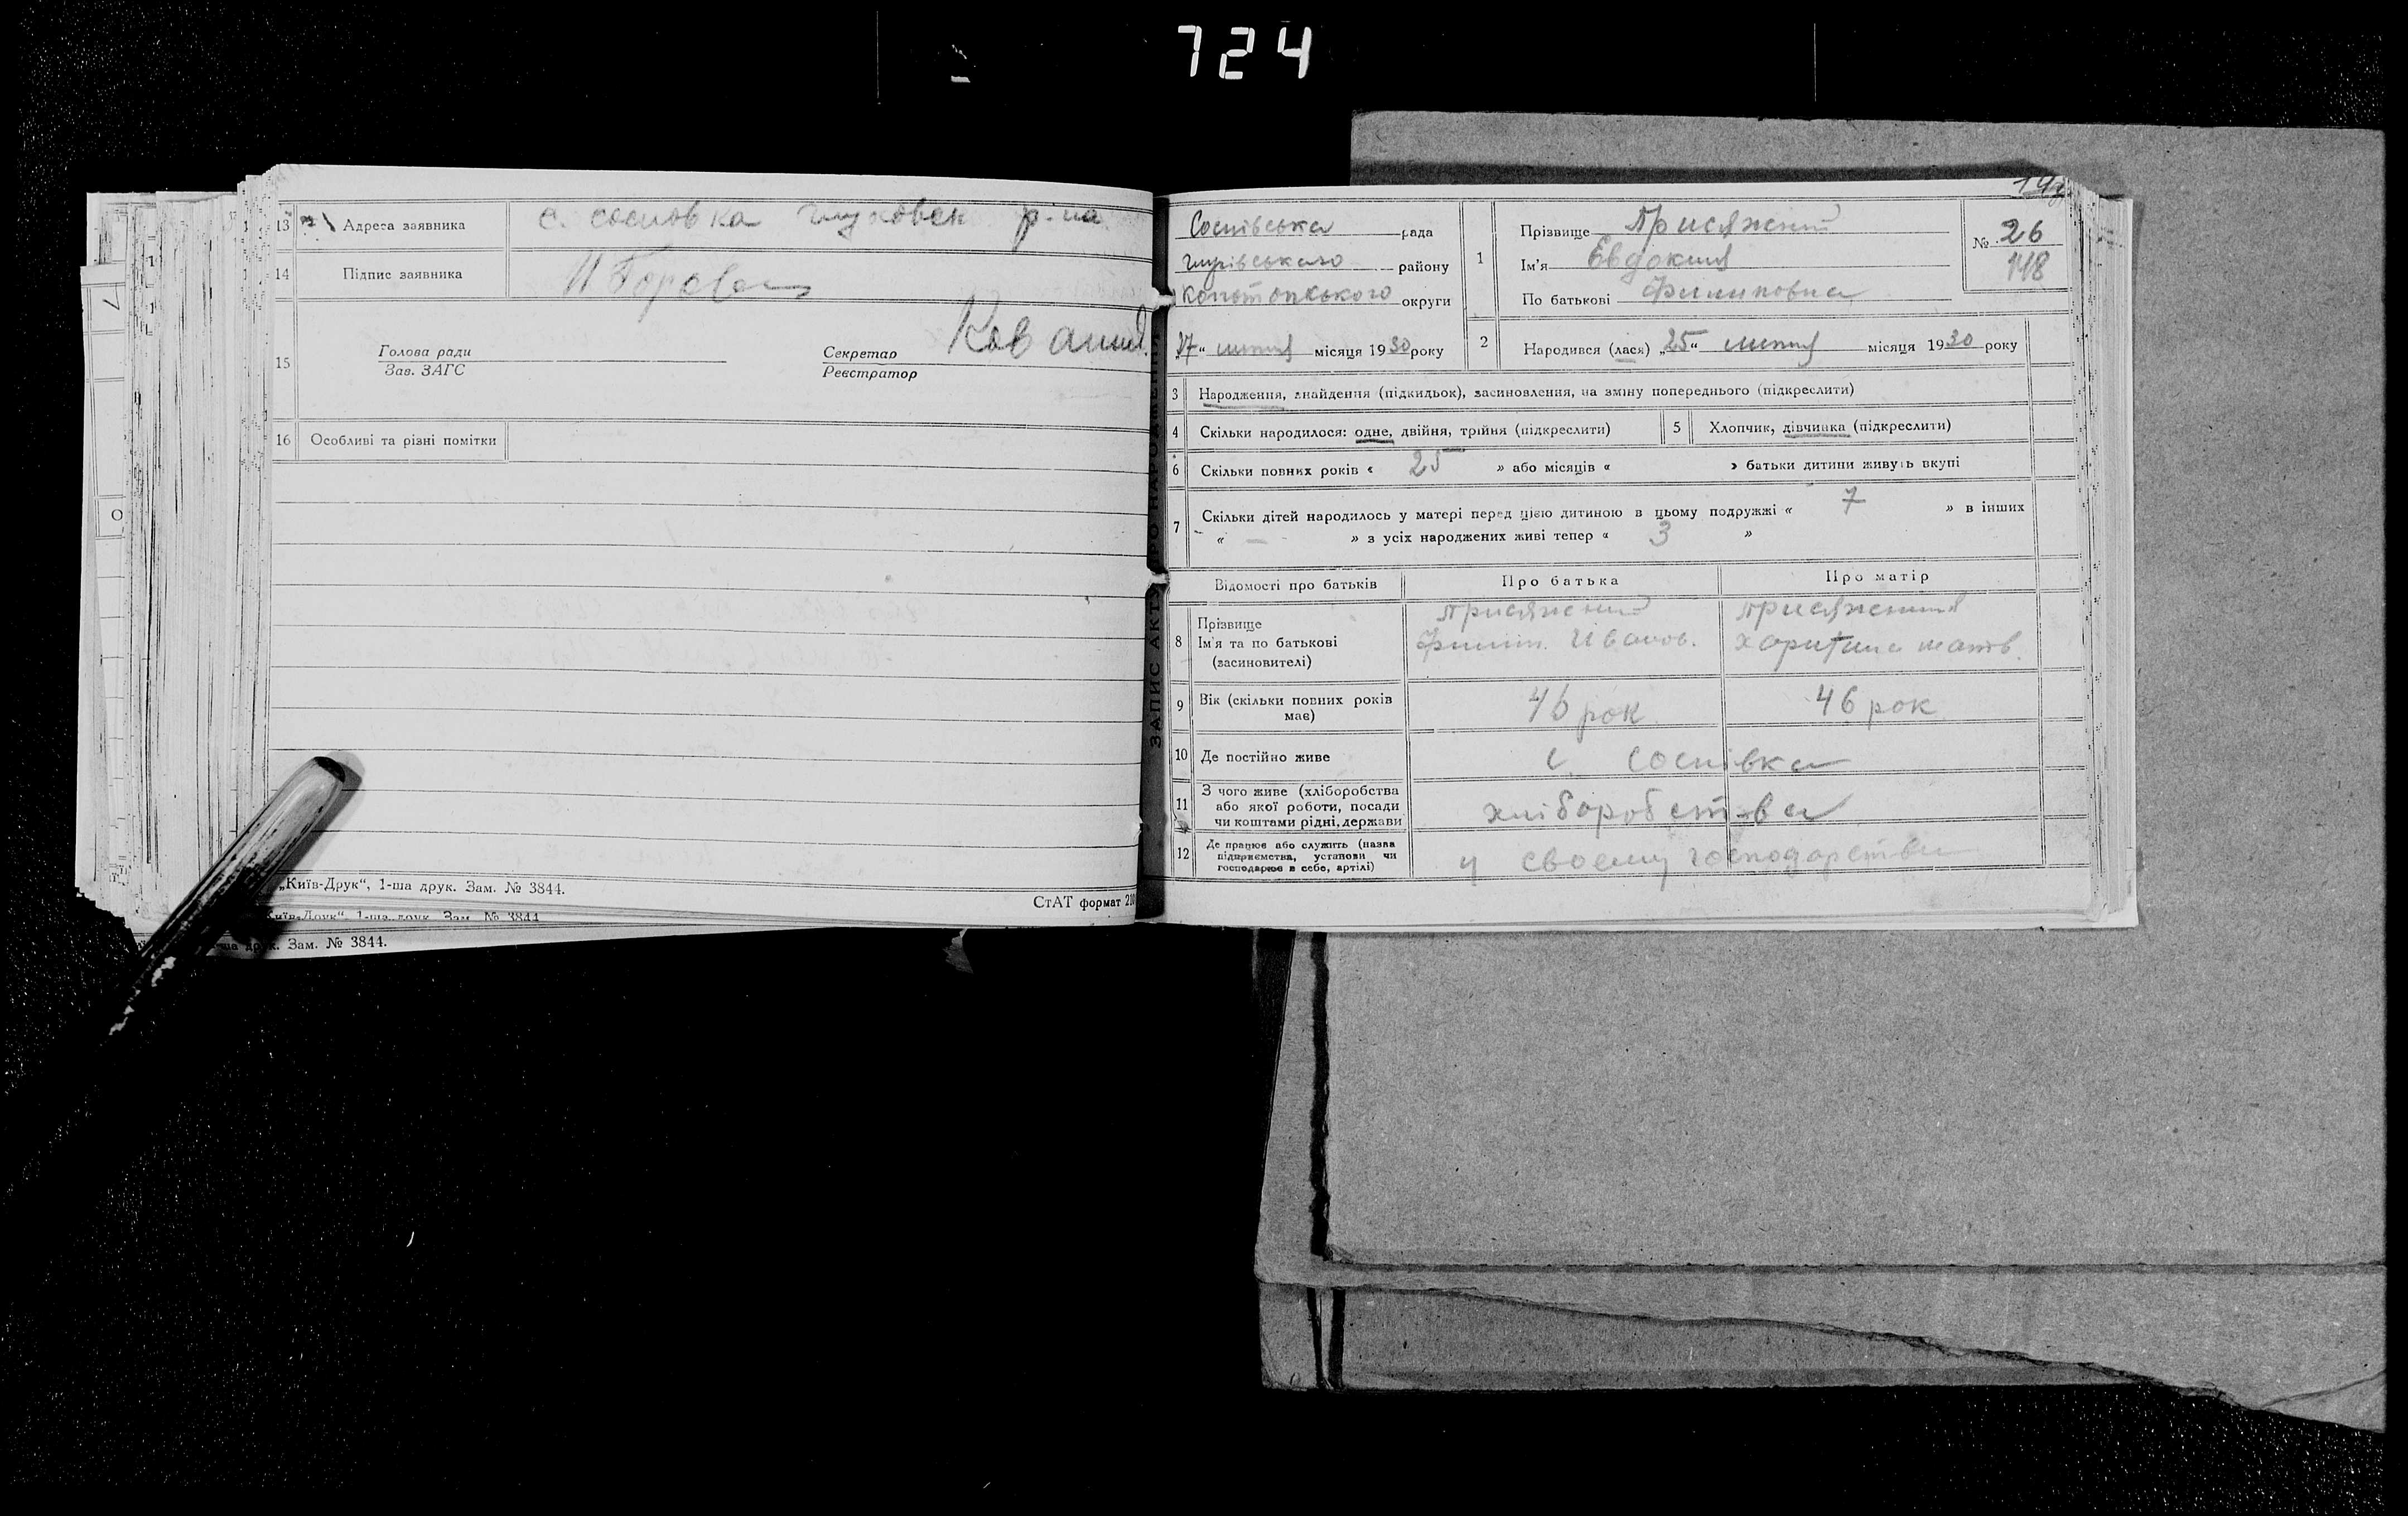 724
13 Адреса заявника с. сосновка глуховск р-на
14 Підпис заявника
15 Голова ради
Зав. ЗАГС
Секретар
Реєстратор
16 Особливі та різні помітки
„Київ-Друк“, 1-ша друк. Зам. № 3844.
СтАТ формат
„Київ-Друк“, 1-ша друк. Зам. № 3844
Зам. № 3844.
ЗАПИС АКТУ ПРО НАРОДЖЕННЯ
Соснівська рада
глухівського району
Конотопського округи
27 “ липня місяця 1930 року
1 Прізвище Присяжний
Ім'я Евдокия
По батькові Филиповна
№ 26
148
2 Народився (лася) „25“ липня місяця 1930 року
3 Народження, знайдення (підкидьок), засиновлення, на зміну попереднього (підкреслити)
4 Скільки народилося: одне, двійня, трійня (підкреслити) 5 Хлопчик, дівчинка (підкреслити)
6 Скільки повних років « 25 » або місяців « » батьки дитини живуть вкупі
7 Скільки дітей народилось у матері перед цією дитиною в цьому подружжі « 7 » в інших
« — » з усіх народжених живі тепер « 3 »
Відомості про батьків Про батька Про матір
8 Прізвище Ім'я та по батькові (засиновителі)
Присяжний Присяжния
Филип. Иванов. Харитина матв.
9 Вік (скільки повних років має) 46 рок 46 рок
10 Де постійно живе с. соснівка
11 З чого живе (хліборобства або якої роботи, посади чи коштами рідні, держави хліборобства
12 Де працює або служить (назва підприємства, установи чи господарює в себе, артілі) у своему господарстви